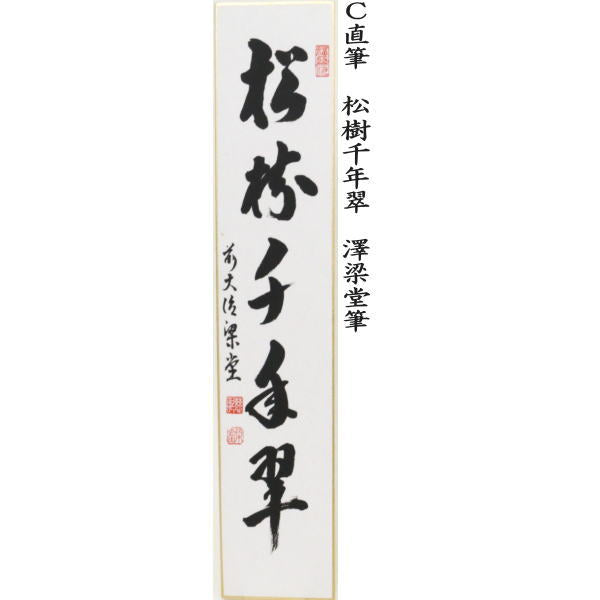 C直筆 松樹千年翠 澤梁堂筆
松樹千年翠
前大徳梁堂